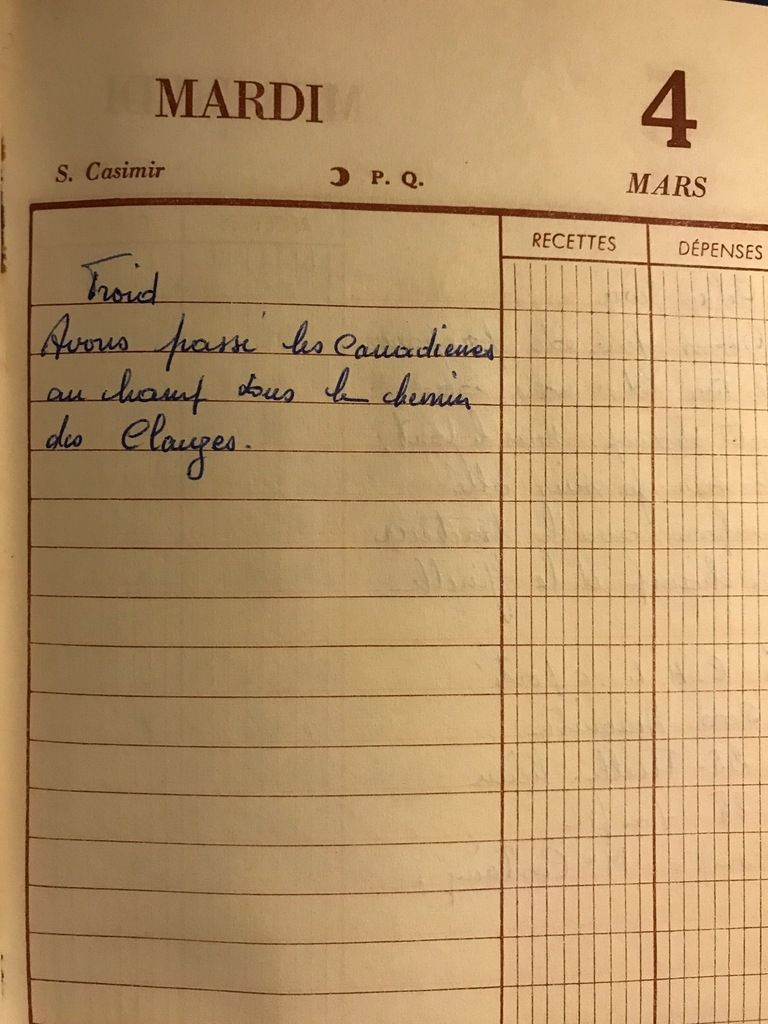 MARDI
4
S. Casimir
P. Q.
MARS
RECETTES
DÉPENSES
Froid
Avons passé les Canadienes
au champ dans le chemin
des Clauges.